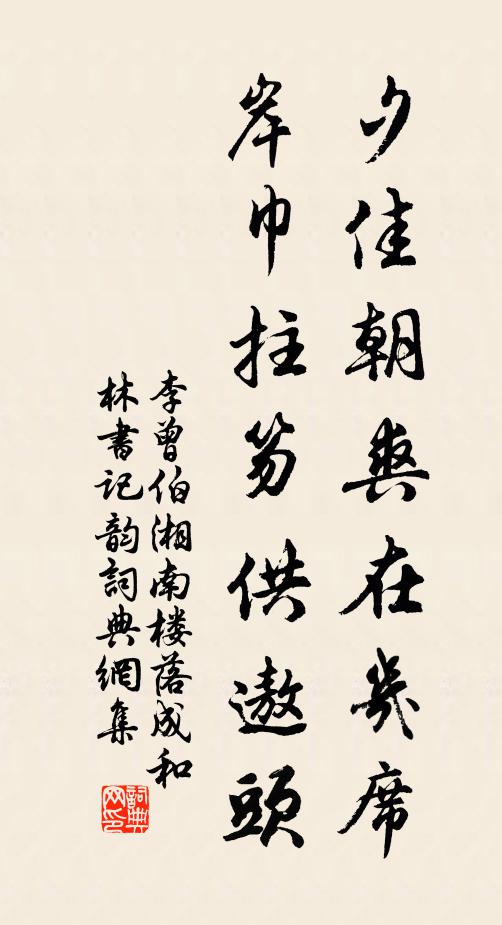 夕佳朝爽在几席
岸巾拄笏供遨頭
李曾伯湘南楼落成和
林書记韵詞典網集
詞典网印